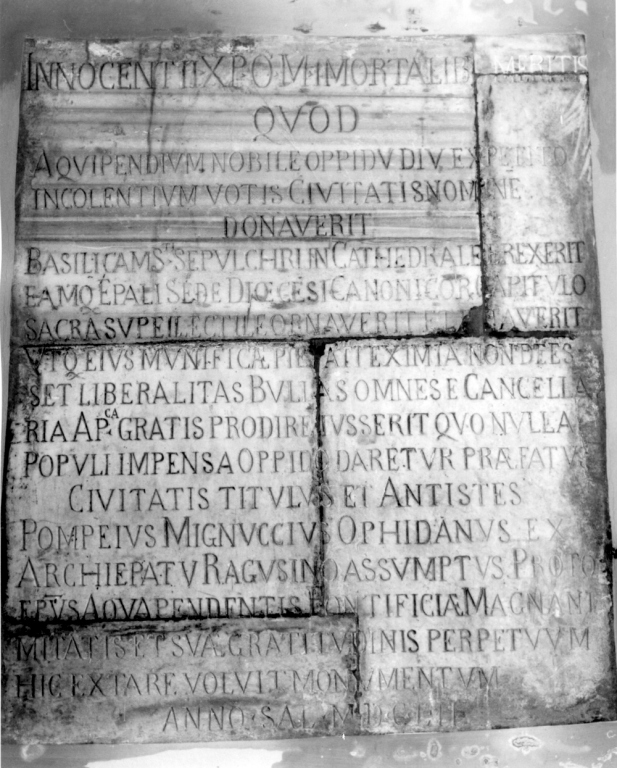 INNOCENTII·X·P·O·M·IMMORTALIB MERITIS
QVOD
AQVIPENDIVM NOBILE OPPIDV DIV EXPETITO
INCOLENTIVM VOTIS CIVITATIS NOMINE
DONAVERIT
BASILICAM STI SEPVLCHRI IN CATHEDRALE EREXERIT
EAMQ EPALI SEDE DIOECESI CANONICOR CAPITVLO
SACRA SVPELLECTILE ORNAVERIT ET AVERIT
VTQ EIVS MVNIFICÆ PIETATI EXIMIA NON DEES
SET LIBERALITAS BVLLAS OMNES E CANCELLA
RIA APCA GRATIS PRODIRE IVSSERIT QVO NVLLA
POPVLI IMPENSA OPPIDO DARETVR PRÆFATVS
CIVITATIS TITVLVS ET ANTISTES
POMPEIVS MIGNVCCIVS OPHIDANVS EX
ARCHIEPATV RAGVSINO ASSVMPTVS PROTO
EPVS AQVAPENDENTIS PONTIFICIÆ MAGNANI
MITATIS ET SVÆ GRATITVDINIS PERPETVVM
HIC EXTARE VOLVIT MONVMENTVM
ANNO SAL